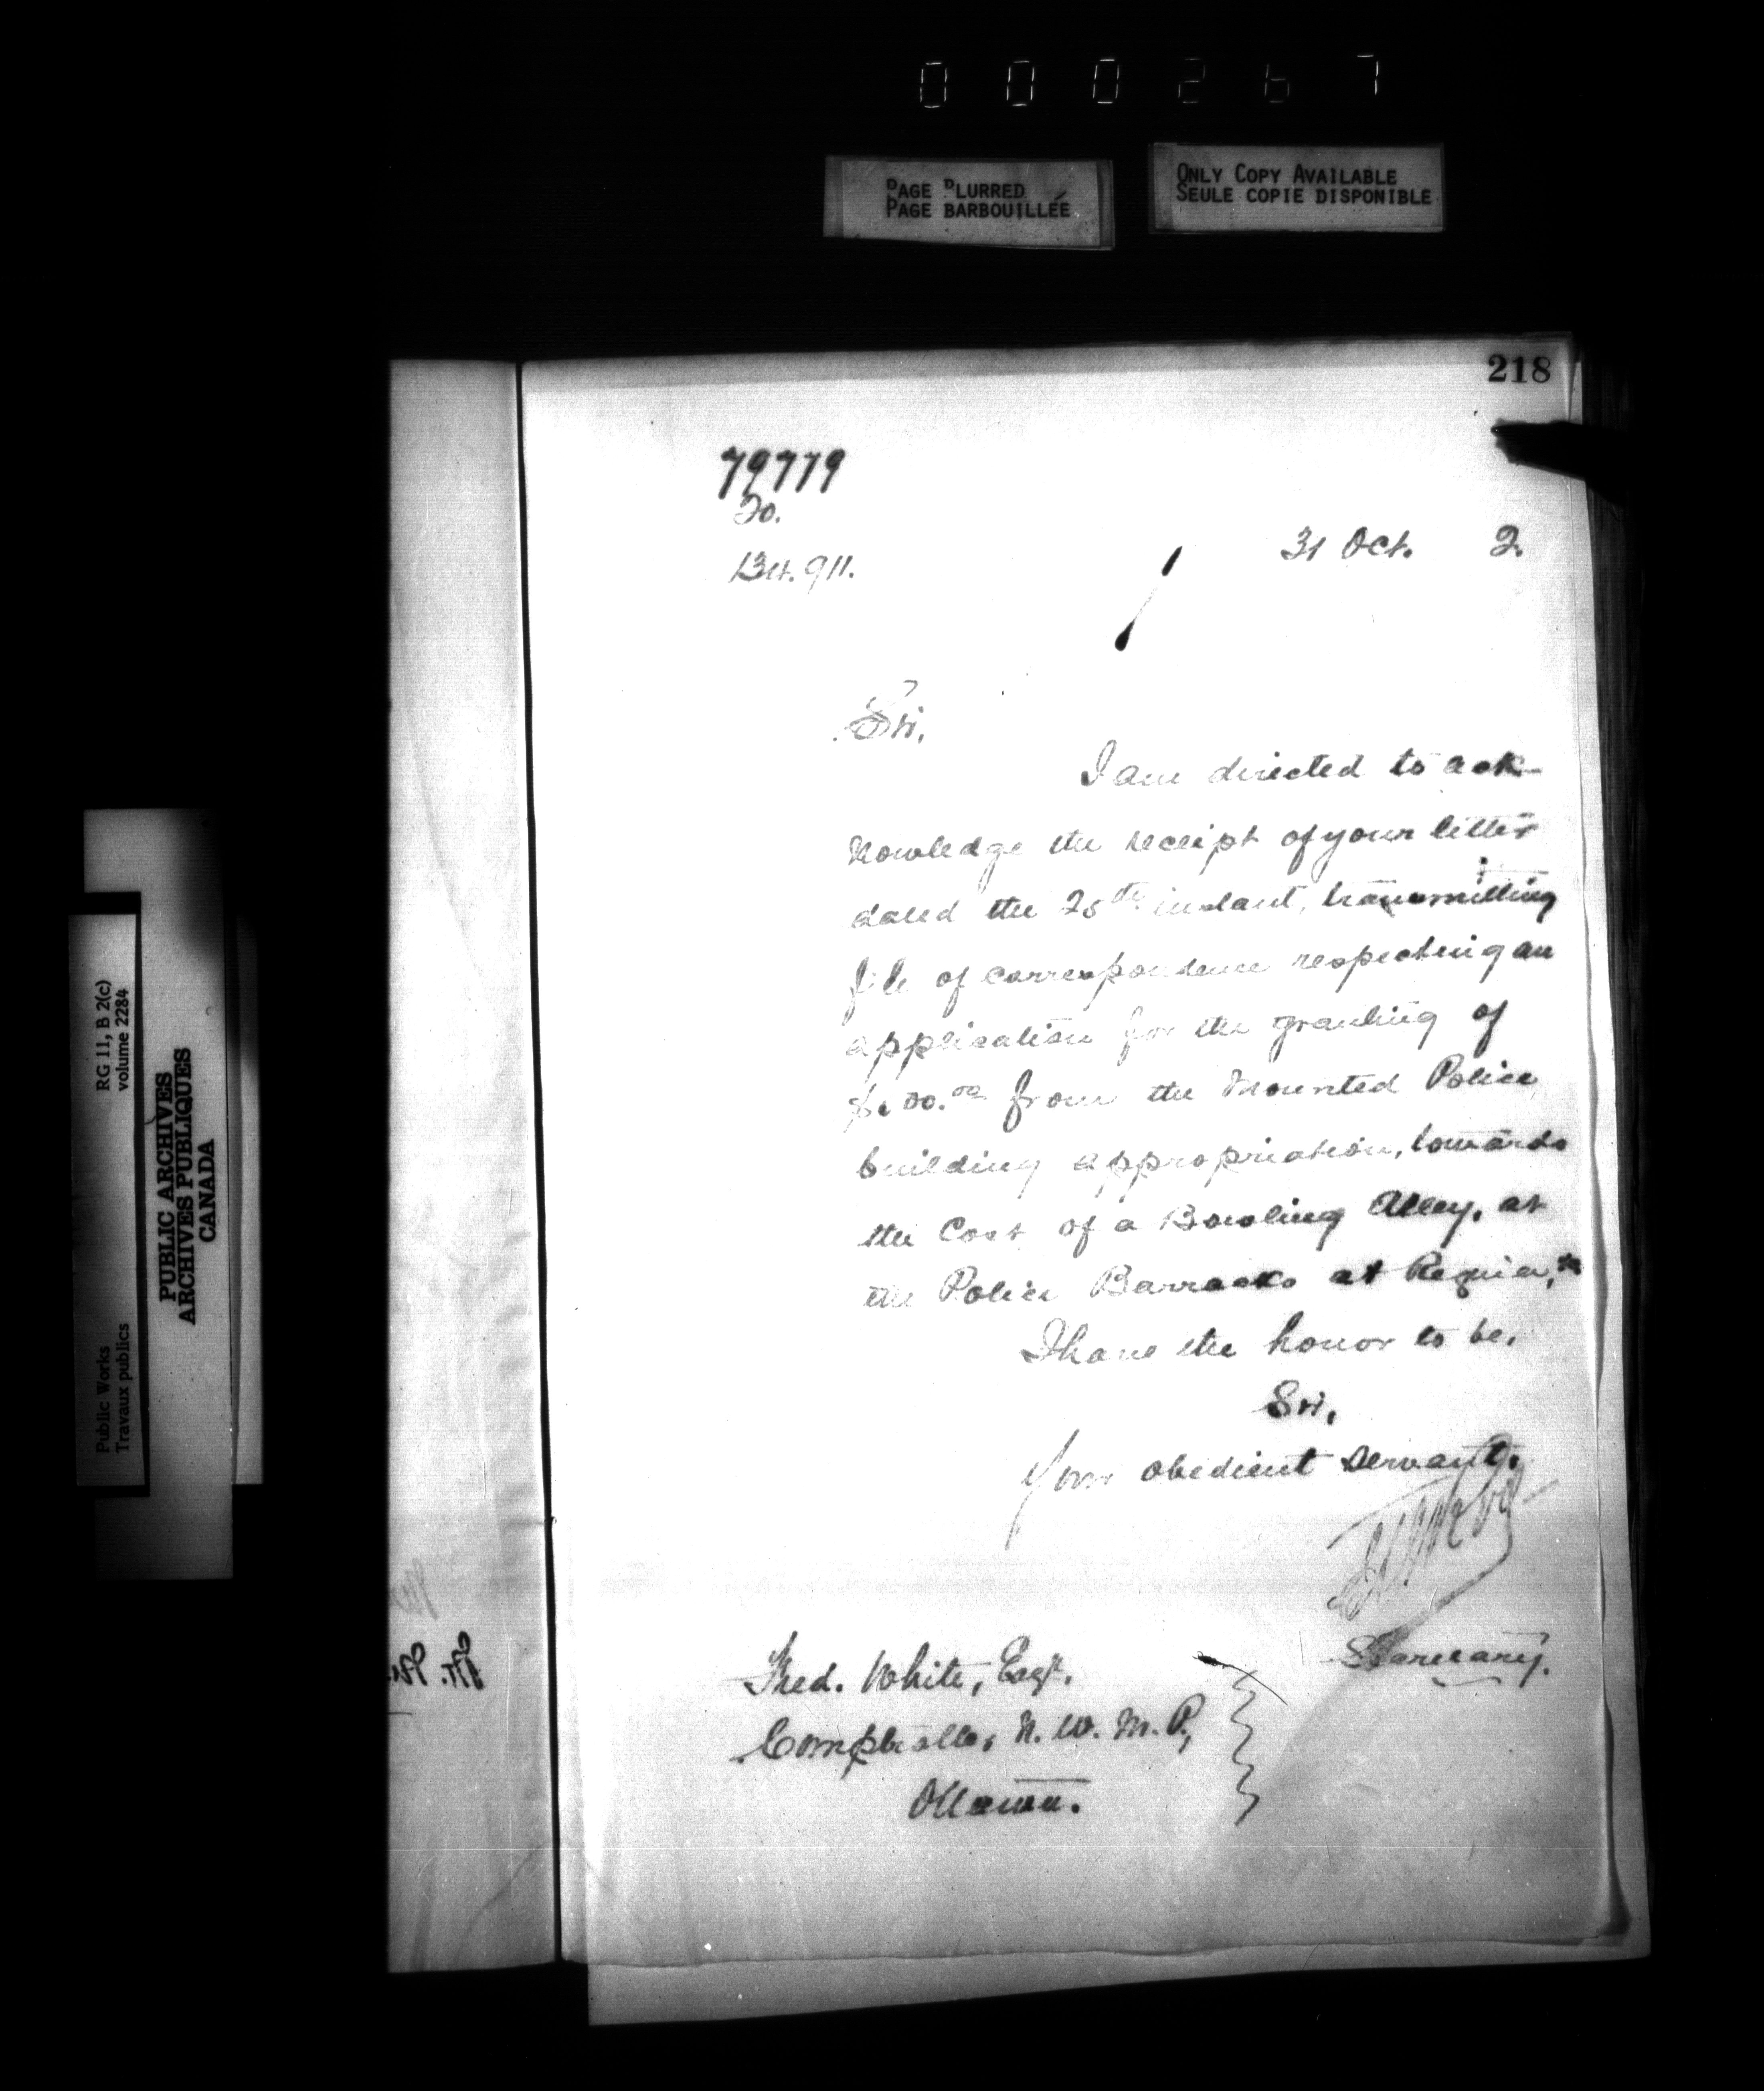 000267
PAGE BLURRED
PAGE BARBOUILLÉE
ONLY COPY AVAILABLE
SEULE COPIE DISPONIBLE
218
79779
134.911.
31 Oct. 2.
Sir,
I am directed to ack-
nowledge the receipt of your letter
dated the 25th instant, transmitting
file of correspondence respecting an
application for the granting of
00.00 from the Mounted Police
building appropriation, towards
the Cost of a Bowling Alley, at
the Police Barracks at Regina,
I have the honor to be,
Sir,
Your obedient servant.
Secretary.
Fred. White, Esqr.
Comptroller N. W. M. P,
Ottawa.
RG 11, B 2(c)
volume 2284
Public Works
Travaux publics
PUBLIC ARCHIVES
ARCHIVES PUBLIQUES
CANADA